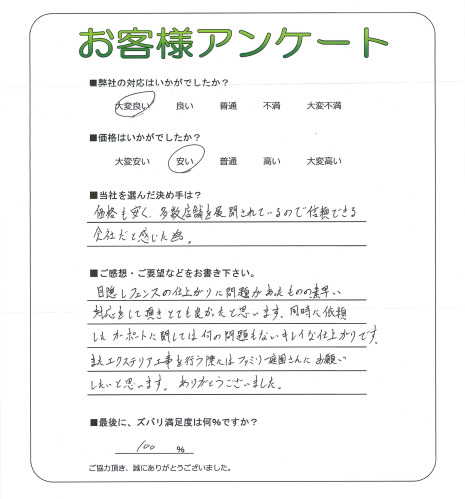 お客様アンケート
■弊社の対応はいかがでしたか？
大変良い 良い 普通 不満 大変不満
■価格はいかがでしたか？
大変安い 安い 普通 高い 大変高い
■当社を選んだ決め手は？
価格も安く、多数店舗を展開されているので信頼できる
会社だと感じた為。
■ご感想・ご要望などをお書き下さい。
目隠しフェンスの仕上がりに問題があったものの素早い
対応をして頂きとても良かったと思います。同時に依頼
したカーポートに関しては何の問題もないキレイな仕上がりです。
またエクステリア工事を行う際にはファミリー庭園さんにお願い
したいと思います。ありがとうございました。
■最後に、ズバリ満足度は何％ですか？
100 ％
ご協力頂き、誠にありがとうございました。